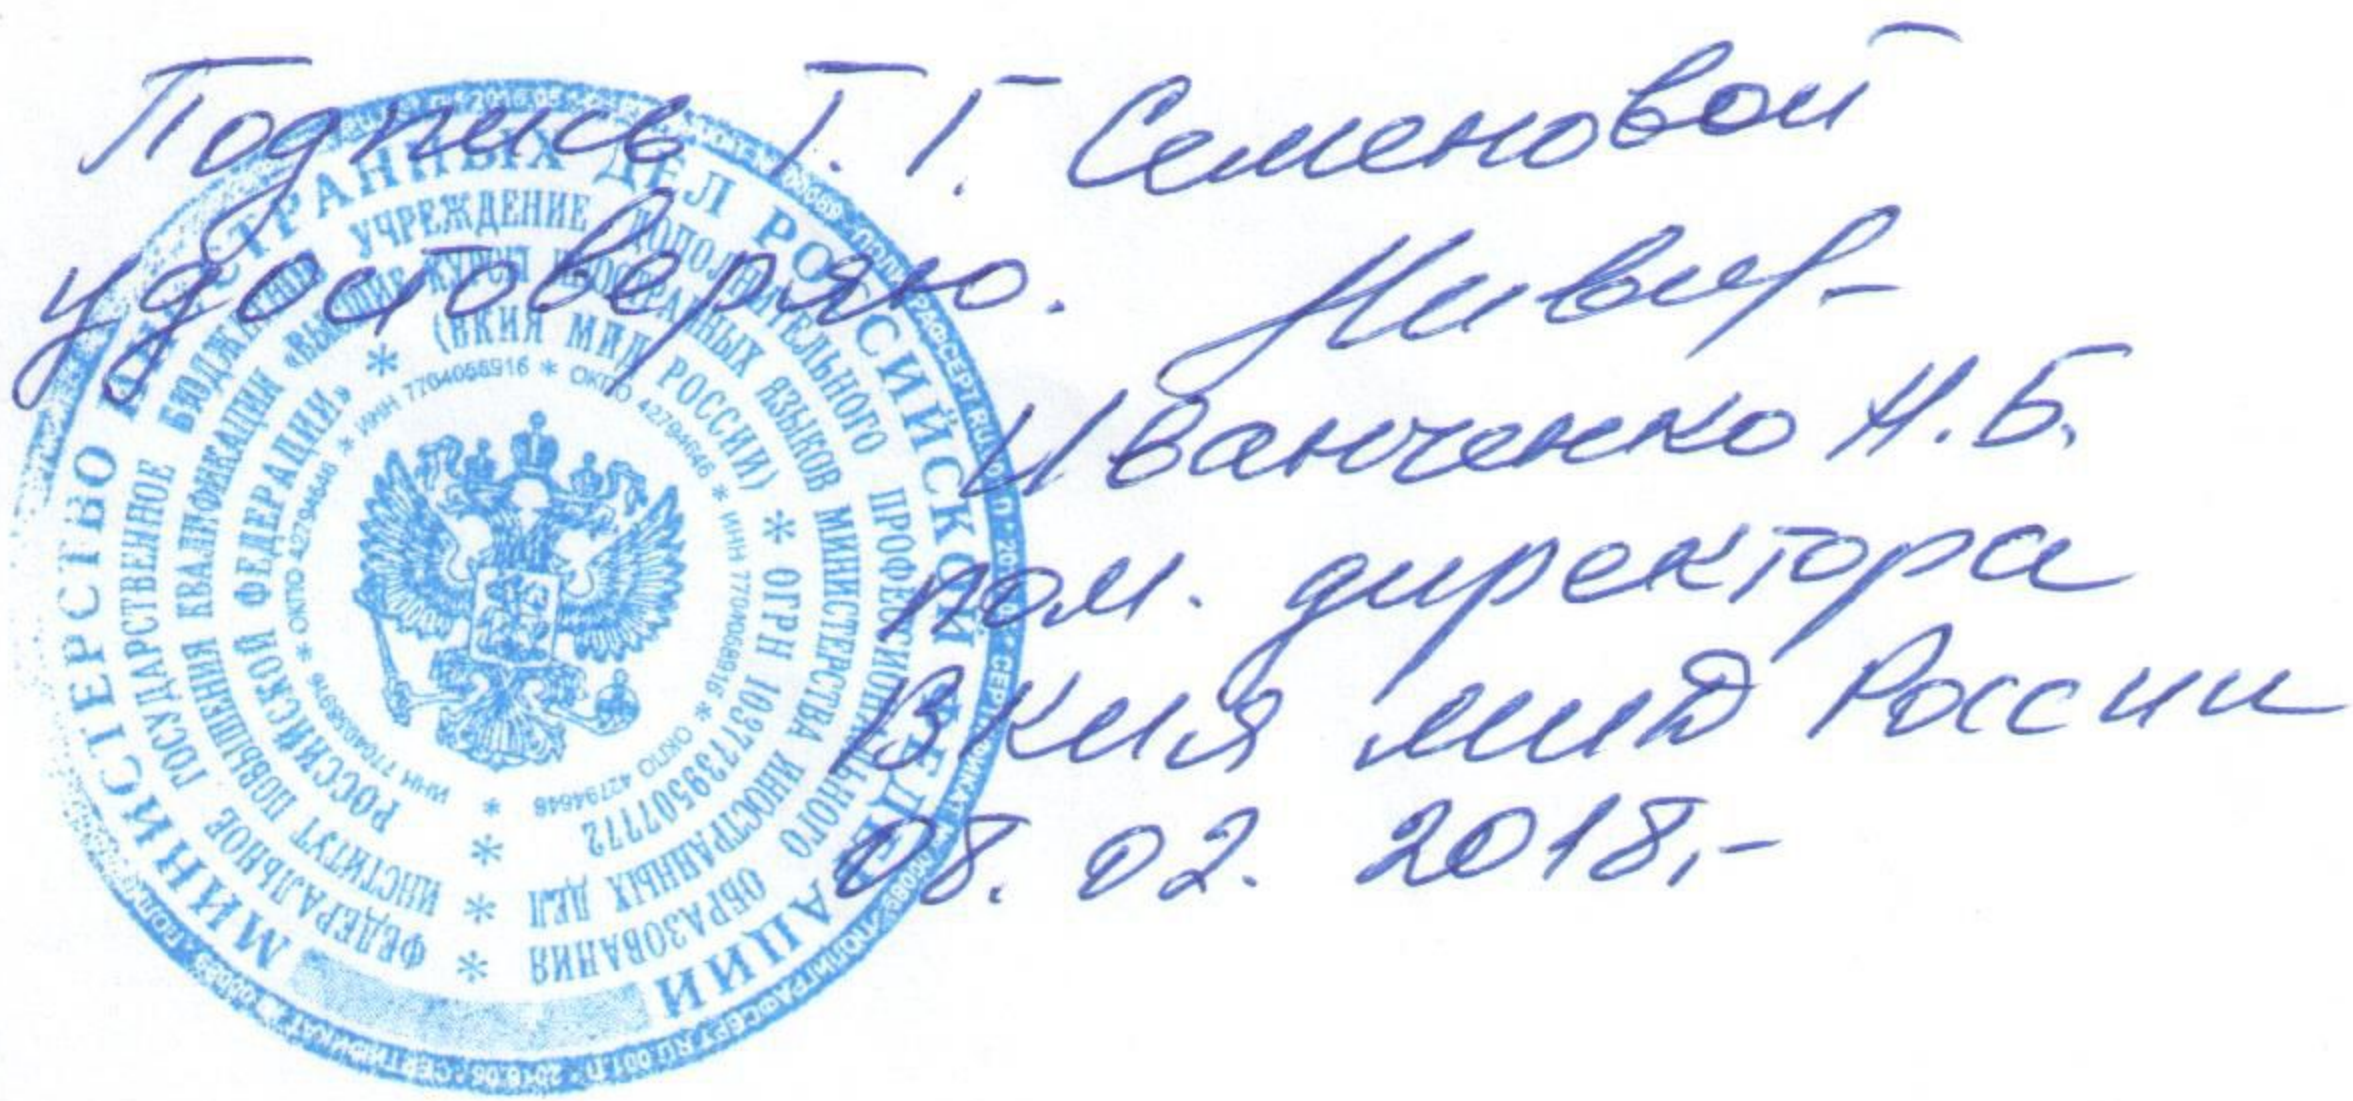 Подпись Т. Г. Семеновой
удостоверяю.
Иванченко Н.Б.
пом. директора
ВКИЯ МИД России
08. 02. 2018,-
МИНИСТЕРСТВО ИНОСТРАННЫХ ДЕЛ РОССИЙСКОЙ ФЕДЕРАЦИИ
ФЕДЕРАЛЬНОЕ ГОСУДАРСТВЕННОЕ БЮДЖЕТНОЕ УЧРЕЖДЕНИЕ ДОПОЛНИТЕЛЬНОГО ПРОФЕССИОНАЛЬНОГО ОБРАЗОВАНИЯ *
ИНСТИТУТ ПОВЫШЕНИЯ КВАЛИФИКАЦИИ «ВЫСШИЕ КУРСЫ ИНОСТРАННЫХ ЯЗЫКОВ МИНИСТЕРСТВА ИНОСТРАННЫХ ДЕЛ *
РОССИЙСКОЙ ФЕДЕРАЦИИ» * (ВКИЯ МИД РОССИИ) * ОГРН 1037739507772 *
* ИНН 7704056916 * ОКПО 42794646 * ИНН 7704056916 * ОКПО 42794646 * ИНН 7704056916 * ОКПО 42794646